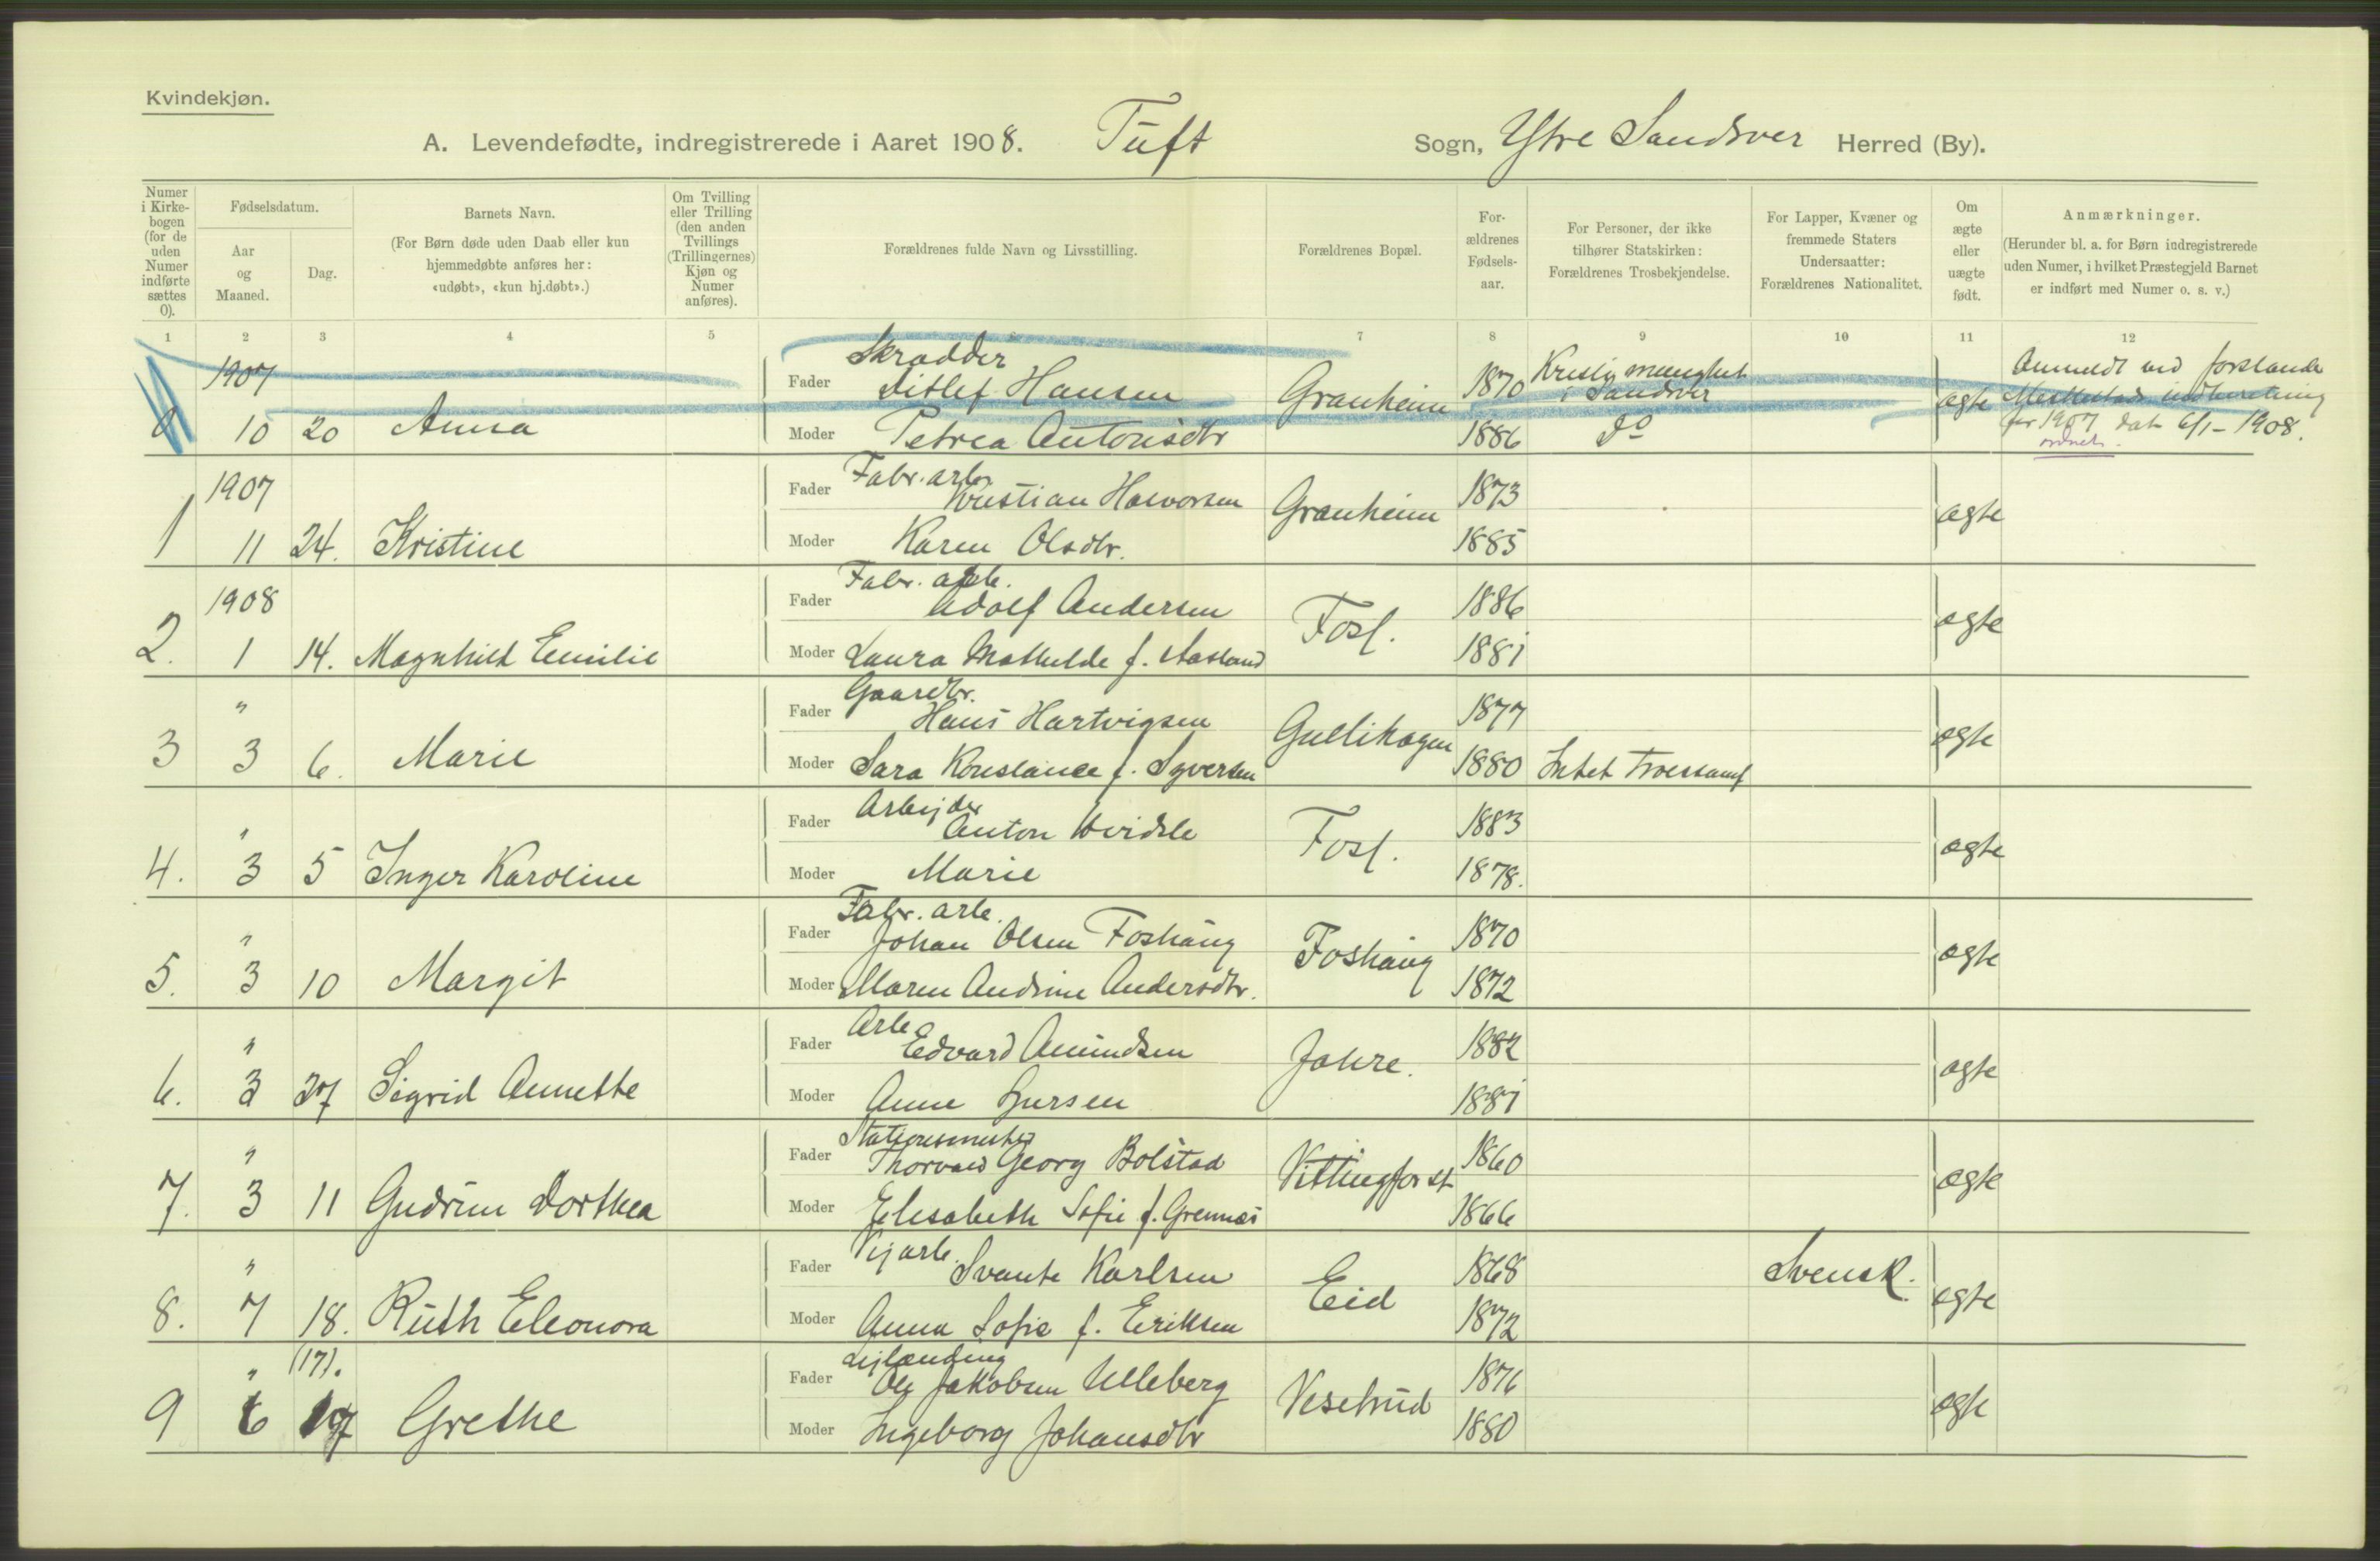 Kvindekjøn.
A. Levendefødte, indregistrerede i Aaret 1908. Tuft Sogn, Ytre Sandsver Herred (By).
Numer i Kirkebogen (for de uden Numer indførte sættes 0).
Fødselsdatum.
Aar og Maaned.
Dag.
Barnets Navn.
(For Børn døde uden Daab eller kun hjemmedøbte anføres her: «udøbt», «kun hj.døbt».)
Om Tvilling eller Trilling (den anden Tvillings (Trillingernes) Kjøn og Numer anføres).
Forældrenes fulde Navn og Livsstilling.
Forældrenes Bopæl.
For-ældrenes Fødsels-aar.
For Personer, der ikke tilhører Statskirken: Forældrenes Trosbekjendelse.
For Lapper, Kvæner og fremmede Staters Undersaatter: Forældrenes Nationalitet.
Om ægte eller uægte født.
Anmærkninger.
(Herunder bl. a. for Børn indregistrerede uden Numer, i hvilket Præstegjeld Barnet er indført med Numer o. s. v.)
1 2 3 4 5 6 7 8 9 10 11 12
1907 Skrædder
Fader Ditlef Hansen Granheim 1870 Kristig menighet i Sandsver ægte Anmeldt ved forstander
0 10 20 Anna Moder Petrea Antonsdtr 1886 Do for 1907 dat 6/1-1908.
ordnet.
1907 Fader Fabr. arb. Kristian Halvorsen Granheim 1873 ægte
1 11 24. Kristine Moder Karen Olsdtr. 1885
1908 Fader Fabr. arb. Adolf Andersen Fosf. 1886 ægte
2. 1 14. Magnhild Emilie Moder Laura Mathilde f. Aasland 1881
" Fader Gaardbr. Hans Hartvigsen Gullikagen 1877 ægte
3 3 6. Marie Moder Sara Konstance f. Syversen 1880 Intet Troessamf
" Fader Arbeider Anton Hvidsle Fosf. 1883 ægte
4. 3 5 Inger Karoline Moder Marie 1878.
" Fader Fabr. arb. Johan Olsen Foshaug Foshaug 1870 ægte
5. 3 10 Margit Moder Maren Andrine Andersdtr. 1872
" Fader Arb. Edvard Amundsen Jahre. 1882 ægte
6. 3 27 Sigrid Annette Moder Anne 1881
" Fader Stationsmester Thorvald Georg Bolstad Vittingfos st 1860 ægte
7. 3 11 Gudrun Dorthea Moder Elisabeth Sofie f. Grennæs 1866
" Fader Vejarb. Svante Karlsen Eid 1868 Svensk. ægte
8. 7 18. Ruth Eleonora Moder Anna Sofie f. Eriksen 1872
" (17). Fader Lejlænding Ole Jakobsen Ulleberg Vesetrud 1876 ægte
9 6 17 Grethe Moder Ingeborg Johansdtr 1880